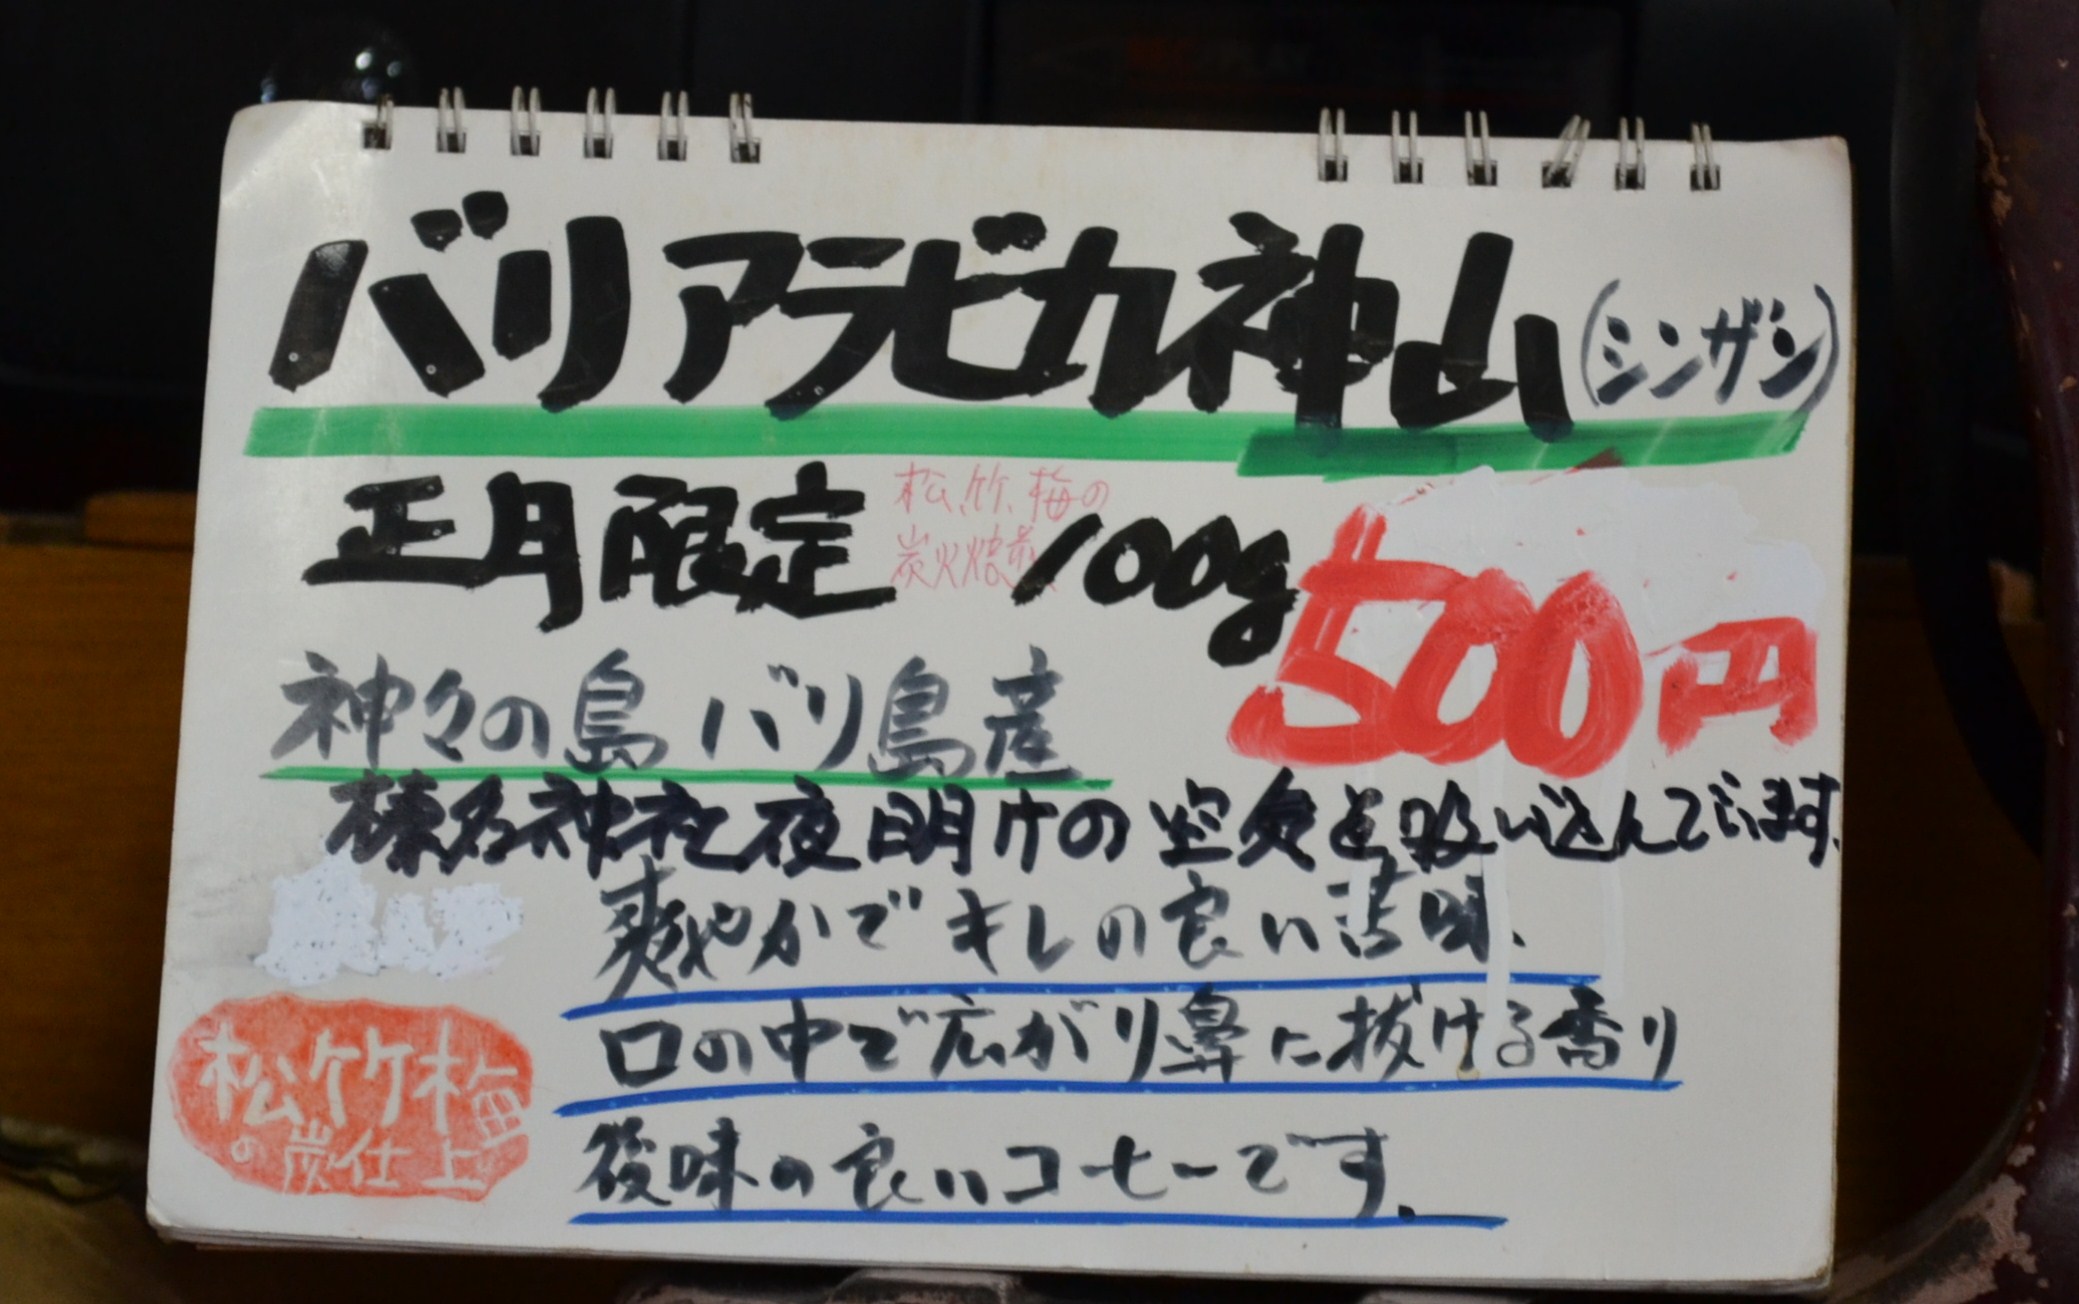 バリアラビカ神山(シンザン)
正月限定 松、竹、梅の
炭火焙煎 100g 500円
神々の島 バリ島産
榛名神社と夜明けの空気を吸い込んでいます。
爽やかでキレの良い苦味、
口の中で広がり鼻に抜ける香り
後味の良いコーヒーです。
松竹梅
の炭仕上